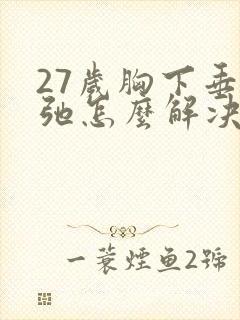 27歲胸下垂
弛怎麼解決
一蓑煙魚2號